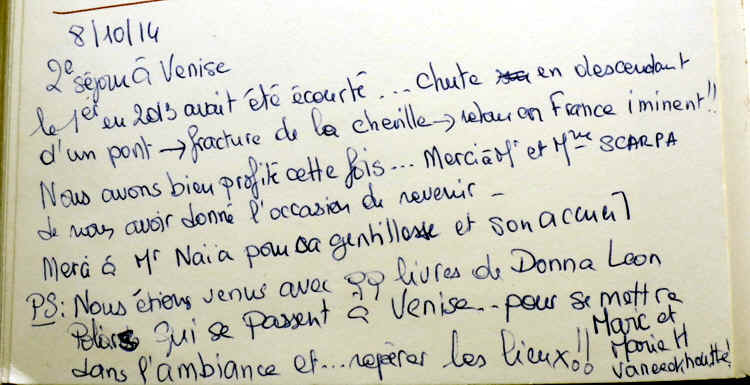 8/10/14
2e séjour à Venise
le 1er en 2013 avait été écourté... chute en descendant
d'un pont → fracture de la cheville → retour en France iminent!!
Nous avons bien profité cette fois... Merci à Mr et Mme SCARPA
de nous avoir donné l'occasion de revenir -
Merci à Mr Naïa pour sa gentillesse et son accueil
PS: Nous étions venus avec qq livres de Donna Leon
Polars qui se passent à Venise... pour se mettre
dans l'ambiance et... repérer les lieux!!
Marie et
Marie H